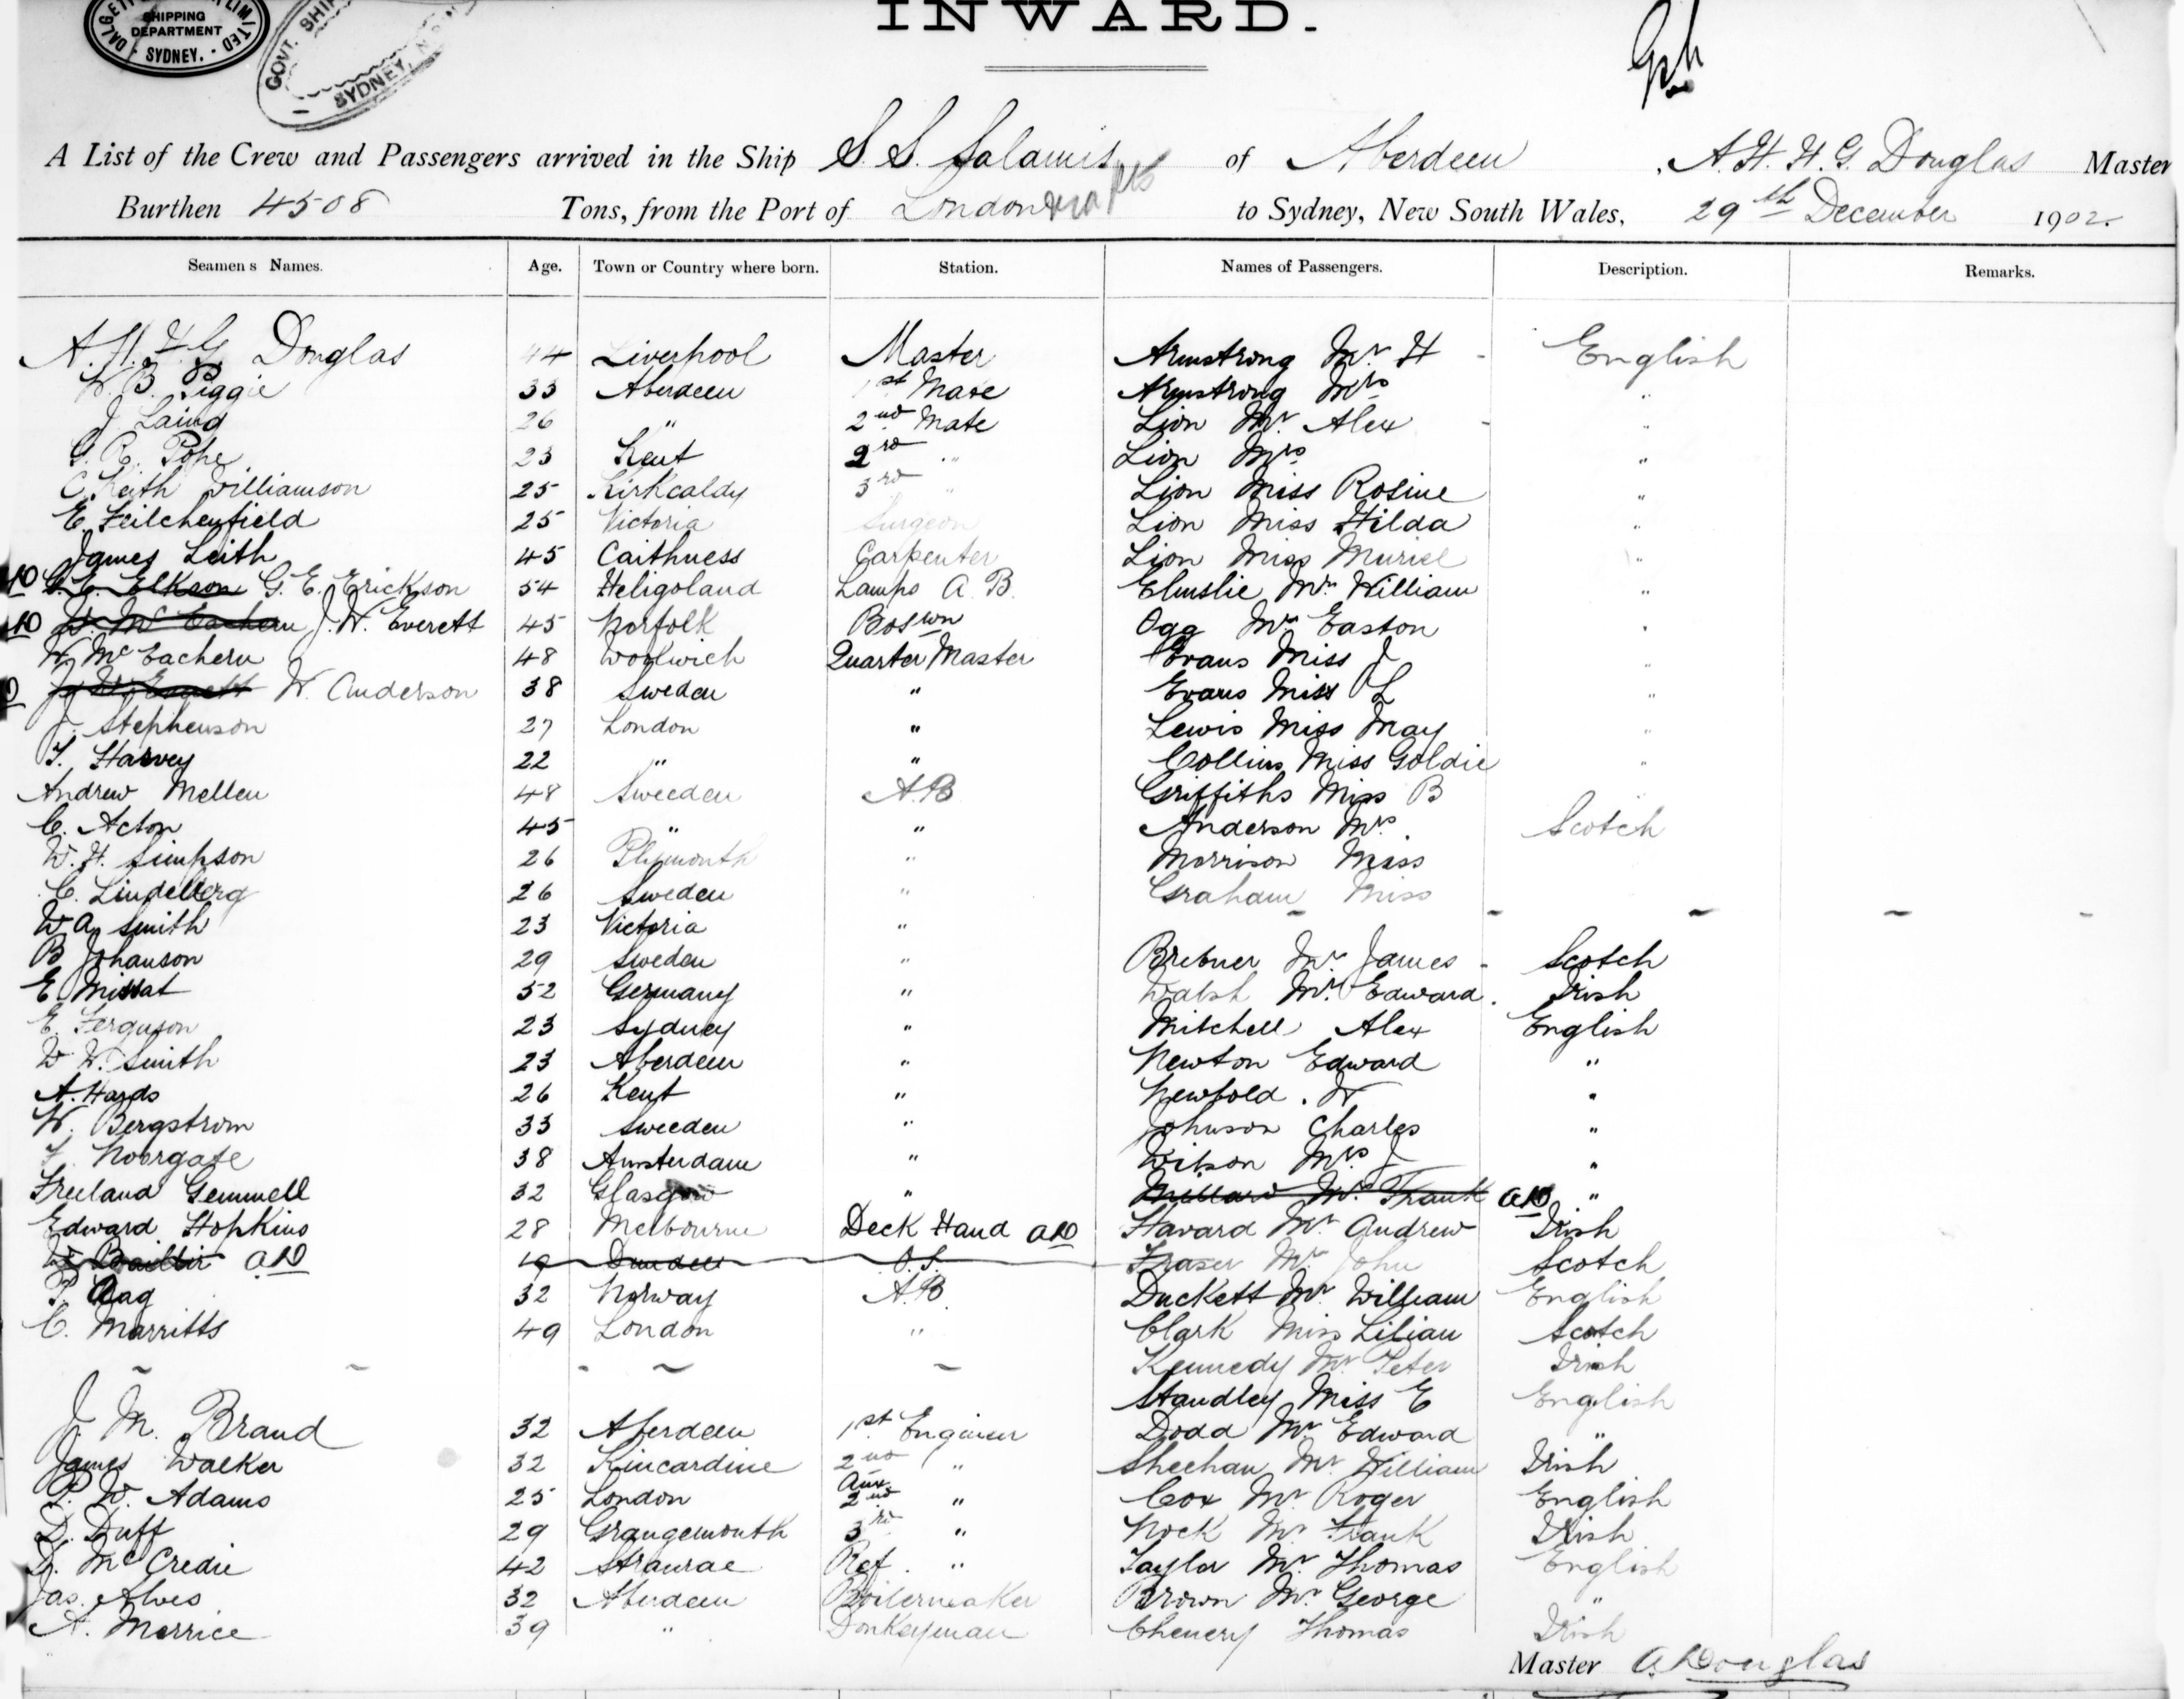 SHIPPING
DEPARTMENT
SYDNEY.
GOVT. SHIP
SYDNEY, N.S.W.
INWARD.
A List of the Crew and Passengers arrived in the Ship S. S. Salamis of Aberdeen, A. H. H. G. Douglas Master
Burthen 4508 Tons, from the Port of London to Sydney, New South Wales, 29th December 1902.
Seamens Names. Age. Town or Country where born. Station. Names of Passengers. Description. Remarks.
A. H. H. G. Douglas 44 Liverpool Master Armstrong Mr H - English
W. B. Piggie 33 Aberdeen 1st Mate Armstrong Mrs "
J. Laing 26 " 2nd Mate Lion Mr. Alex - "
G. R. Pope 23 Kent 2rd " Lion Mrs "
C. Keith Williamson 25 Kirkcaldy 3rd " Lion Miss Rosine "
E. Feilchenfield 25 Victoria Surgeon Lion Miss Hilda "
James Leith 45 Caithness Carpenter Lion Miss Muriel "
AD G. E. Elkson G. E. Erickson 54 Heligoland Lamps A. B. Elmslie Mr William "
AD W. McEachern J. W. Everett 45 Norfolk Boswn Ogg Mr Easton "
W. McEachern 48 Woolwich Quarter Master Evans Miss J "
J. W. Everett W. Anderson 38 Sweden " Evans Miss L "
J. Stephenson 27 London " Lewis Miss May "
T. Harvey 22 " " Collins Miss Goldie "
Andrew Mellen 48 Sweeden A.B Griffiths Miss B
C. Acton 45 " " Anderson Mrs. Scotch
W. H. Simpson 26 Plymouth " Morrison Miss
C. Lindelberg 26 Sweden " Graham Miss
W A Smith 23 Victoria "
B Johanson 29 Sweden " Brebner Mr James - Scotch
E. Missat 52 Germany " Walsh Mr. Edward. Irish
E. Ferguson 23 Sydney " Mitchell Alex English
W W. Smith 23 Aberdeen " Newton Edward "
A. Hards 26 Kent " Newbold. W "
W. Bergstrom 33 Sweeden " Johnson Charles "
F. Noorgate 38 Amsterdam " Wilson Mrs J "
Freeland Gemmell 32 Glasgow " Millard Mr. Frank AD "
Edward Hopkins 28 Melbourne Deck Hand AD Havard Mr Andrew Irish
W. Baillie AD 19 Dundee O.S. Fraser Mr John Scotch
P. Aag 32 Norway A.B. Duckett Mr William English
C. Marritts 49 London " Clark Miss Lilian Scotch
Kennedy Mr Peter Irish
Standley Miss E English
J. M. Brand 32 Aberdeen 1st Engineer Dodd Mr Edward "
James Walker 32 Kincardine 2nd " Sheehan Mr William Irish
P. W. Adams 25 London Aux 2nd " Cox Mr Roger English
D. Duff 29 Grangemouth 3rd " Nock Mr Frank Irish
D. McCredie 42 Stranrae Ref. " Taylor Mr. Thomas English
Jas. Alves 32 Aberdeen Boilermaker Brown Mr. George "
A. Merrice 39 " Donkeyman Chenery Thomas Irish
Master A. Douglas